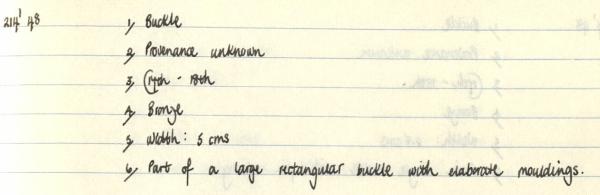 214' 48 1, Buckle
2, Provenance unknown
3, C17th - 18th
4, Bronze
5, Width: 5 cms
6, Part of a large rectangular buckle with elaborate mouldings.